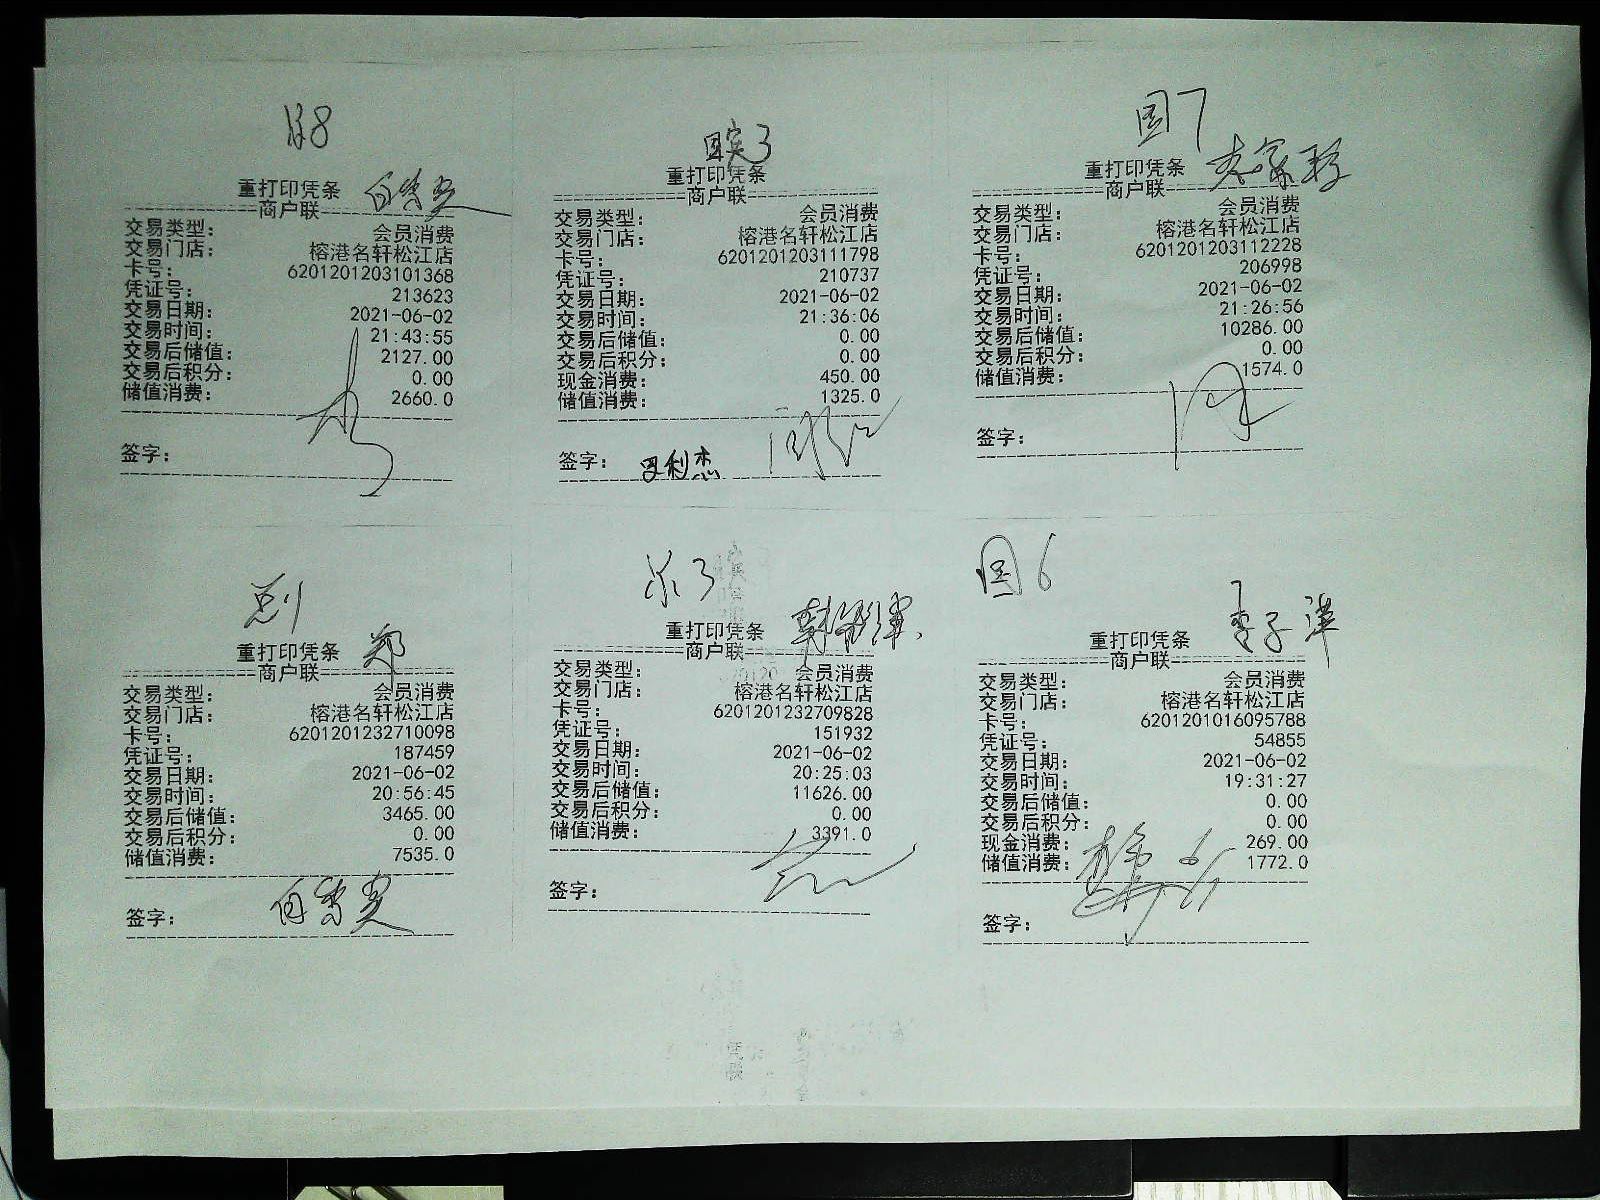 重打印凭条
商户联
交易类型： 会员消费
交易门店： 榕港名轩松江店
卡号： 6201201203101368
凭证号： 213623
交易日期： 2021-06-02
交易时间： 21:43:55
交易后储值： 2127.00
交易后积分： 0.00
储值消费： 2660.0
签字：
国宾3
重打印凭条
商户联
交易类型： 会员消费
交易门店： 榕港名轩松江店
卡号： 6201201203111798
凭证号： 210737
交易日期： 2021-06-02
交易时间： 21:36:06
交易后储值： 0.00
交易后积分： 0.00
现金消费： 450.00
储值消费： 1325.0
签字：
国7
重打印凭条
商户联
交易类型： 会员消费
交易门店： 榕港名轩松江店
卡号： 6201201203112228
凭证号： 206998
交易日期： 2021-06-02
交易时间： 21:26:56
交易后储值： 10286.00
交易后积分： 0.00
储值消费： 1574.0
签字：
重打印凭条 郑
商户联
交易类型： 会员消费
交易门店： 榕港名轩松江店
卡号： 6201201232710098
凭证号： 187459
交易日期： 2021-06-02
交易时间： 20:56:45
交易后储值： 3465.00
交易后积分： 0.00
储值消费： 7535.0
签字：
重打印凭条
商户联
交易类型： 会员消费
交易门店： 榕港名轩松江店
卡号： 6201201232709828
凭证号： 151932
交易日期： 2021-06-02
交易时间： 20:25:03
交易后储值： 11626.00
交易后积分： 0.00
储值消费： 3391.0
签字：
国6
重打印凭条 李子洋
商户联
交易类型： 会员消费
交易门店： 榕港名轩松江店
卡号： 6201201016095788
凭证号： 54855
交易日期： 2021-06-02
交易时间： 19:31:27
交易后储值： 0.00
交易后积分： 0.00
现金消费： 269.00
储值消费： 1772.0
签字：